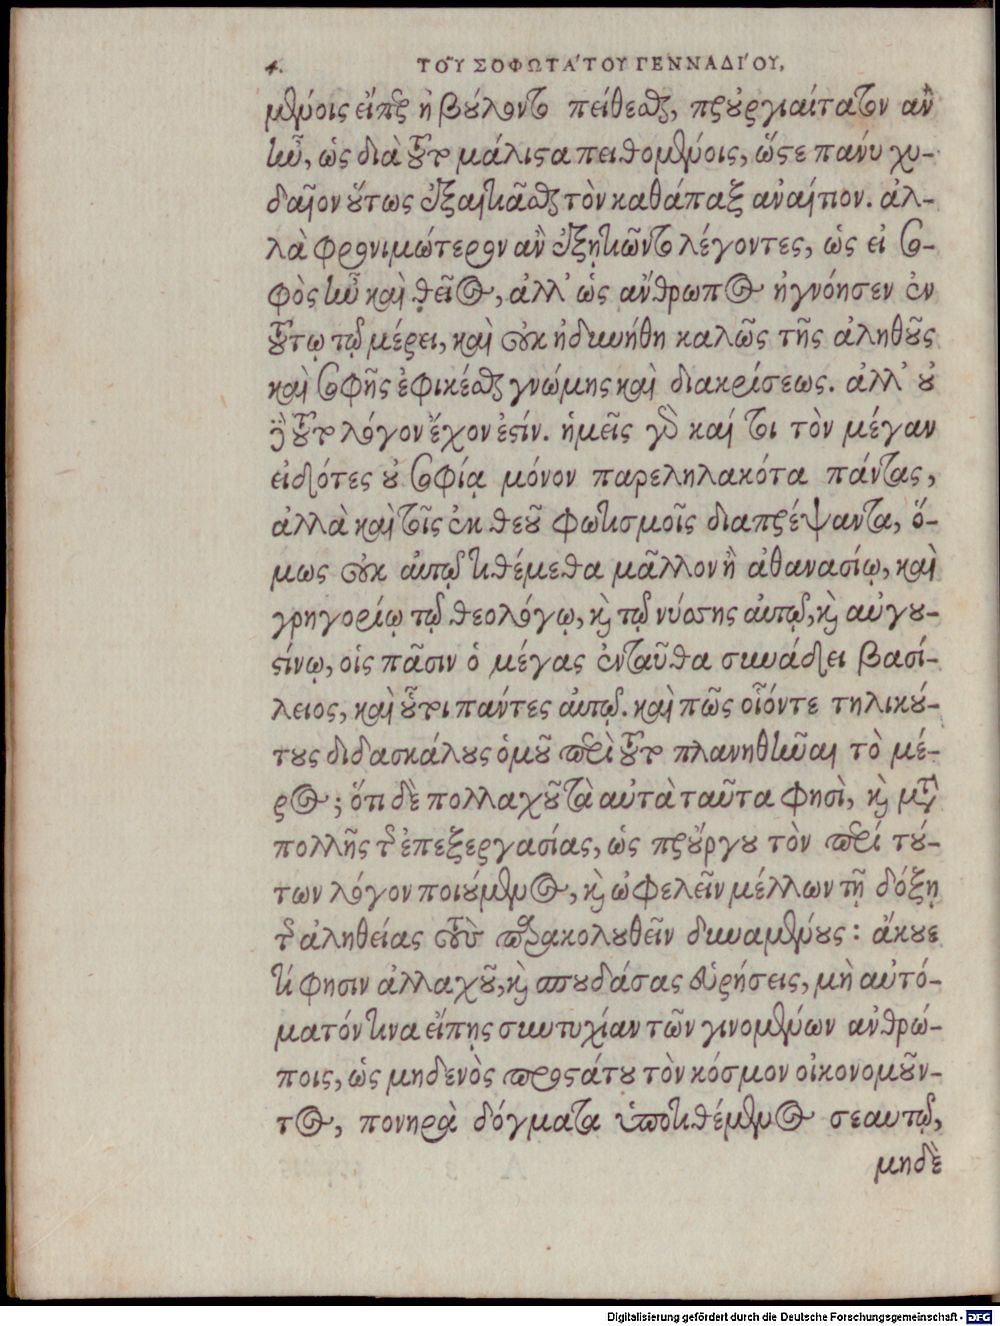 4. ΤΟΥ͂ ΣΟΦΩΤΑ΄ΤΟΥ ΓΕΝΝΑΔΙ΄ΟΥ,
μένοις εἴπερ ἢ βούλοντο πείθεσθαι, προὐργιαίτατον ἂν
ἦν, ὡς διὰ τοῦτο μάλιστα πειθομένοις, ὥστε πάνυ χυ-
δαῖον οὕτως ἐξαπατᾶσθαι τὸν καθάπαξ ἀναίτιον. ἀλ-
λὰ φρονιμώτερον ἂν ἐξηπῶντο λέγοντες, ὡς εἰ σο-
φὸς ἦν καὶ θεῖος, ἀλλ' ὡς ἄνθρωπος ἠγνόησεν ἐν
τούτῳ τῷ μέρει, καὶ οὐκ ἠδυνήθη καλῶς τῆς ἀληθοῦς
καὶ σοφῆς ἐφικέσθαι γνώμης καὶ διακρίσεως. ἀλλ' οὐ
δὲ τοῦτο λόγον ἔχον ἐστίν. ἡμεῖς γὰρ καί τοι τὸν μέγαν
εἰδότες οὐ σοφίᾳ μόνον παρεληλακότα πάντας,
ἀλλὰ καὶ τοῖς ἐκ θεοῦ φωτισμοῖς διαπρέψαντα, ὅ-
μως οὐκ αὐτῷ τιθέμεθα μᾶλλον ἢ ἀθανασίῳ, καὶ
γρηγορίῳ τῷ θεολόγῳ, καὶ τῷ νύσσης αὐτῷ, καὶ αὐγου-
στίνῳ, οἷς πᾶσιν ὁ μέγας ἐνταῦθα συνάδει βασί-
λειος, καὶ οὗτοι πάντες αὐτῷ. καὶ πῶς οἷόντε τηλικού-
τους διδασκάλους ὁμοῦ περὶ τοῦτο πλανηθῆναι τὸ μέ-
ρος; ὅτι δὲ πολλαχοῦ τὰ αὐτὰ ταῦτα φησὶ, καὶ μετὰ
πολλῆς τῆς ἐπεξεργασίας, ὡς προὔργου τὸν περί τού-
των λόγον ποιούμενος, καὶ ὠφελεῖν μέλλων τῇ δόξῃ
τῆς ἀληθείας τοὺς παρακολουθεῖν δυναμένους: ἄκουε
τί φησιν ἀλλαχοῦ, καὶ σπουδάσας εὑρήσεις, μὴ αὐτό-
ματόν τινα εἴπῃς συντυχίαν τῶν γινομένων ἀνθρώ-
ποις, ὡς μηδενὸς προστάτου τὸν κόσμον οἰκονομοῦν-
τος, πονηρὰ δόγματα ὑποτιθέμενος σεαυτῷ,
μηδὲ
Digitalisierung gefördert durch die Deutsche Forschungsgemeinschaft - DFG